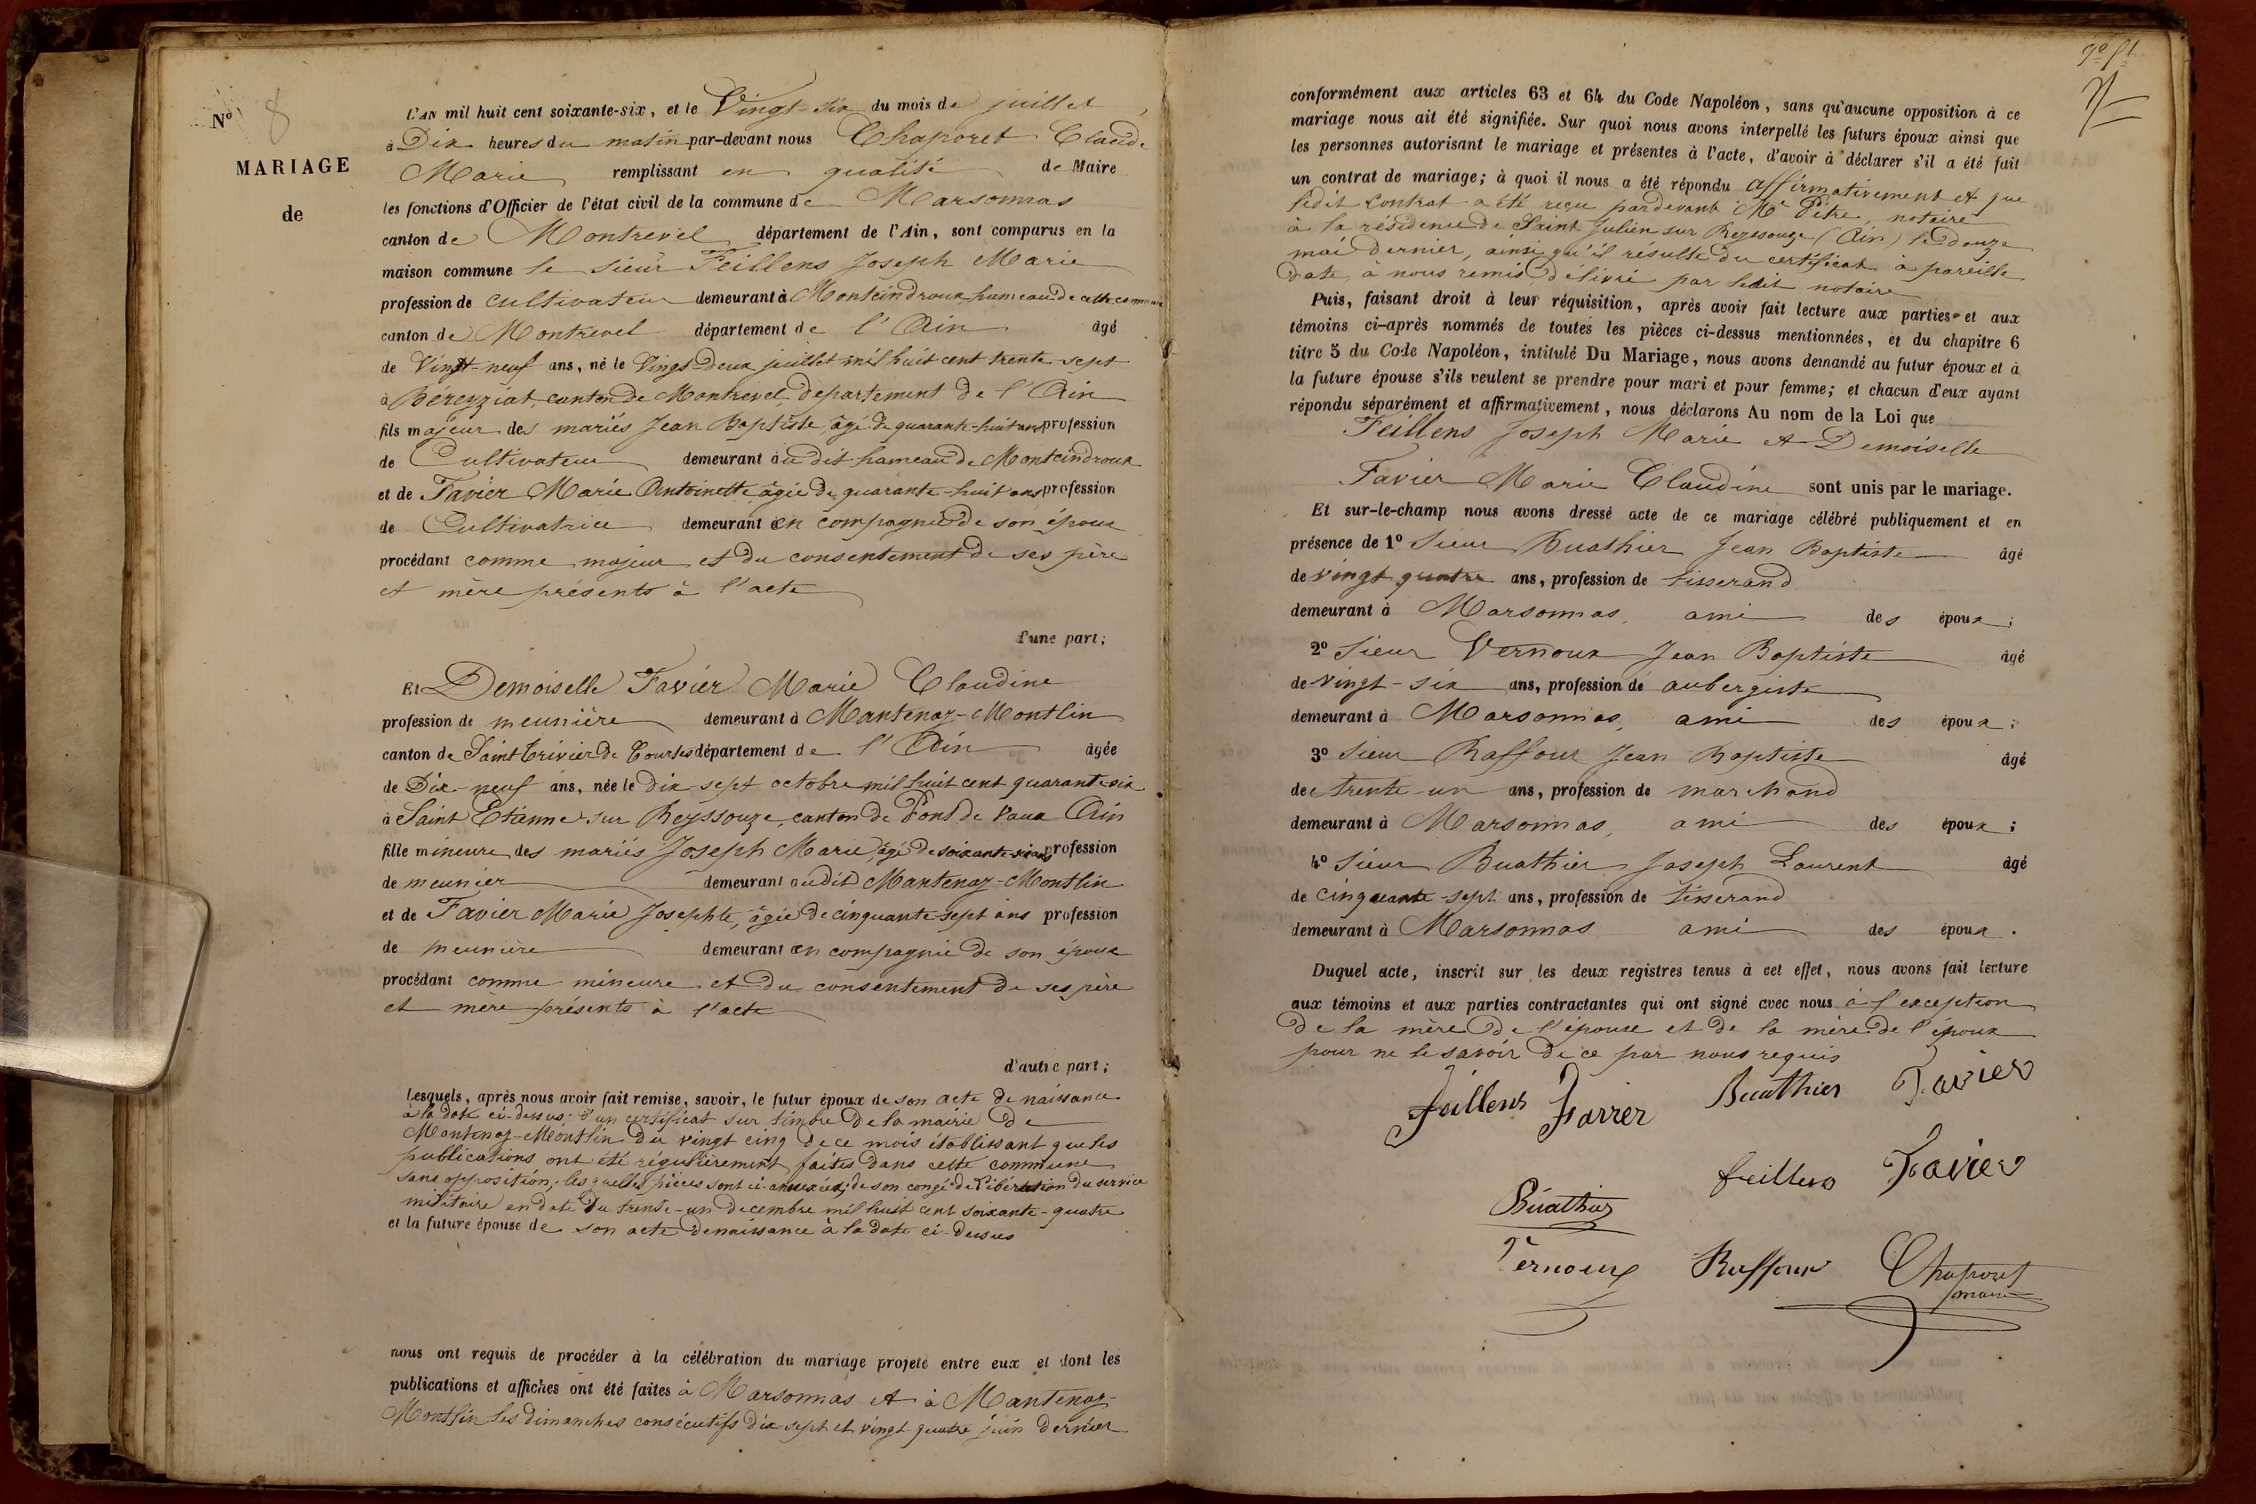 N° 8
MARIAGE
de
L'AN mil huit cent soixante-six, et le Vingt-six du mois de juillet,
à Dix heures du matin par-devant nous Chaporet Claude
Marie remplissant en qualité de Maire
les fonctions d'Officier de l'état civil de la commune de Marsonnas
canton de Montrevel département de l'Ain, sont comparus en la
maison commune le sieur Feillens Joseph Marie
profession de cultivateur demeurant à Monteindroux hameau de cette commune
canton de Montrevel département de l'Ain âgé
de Vingt-neuf ans, né le Vingt-deux juillet mil huit cent trente-sept
à Béreyziat, canton de Montrevel, département de l'Ain
fils majeur des mariés Jean Baptiste, âgé de quarante-huit ans profession
de Cultivateur demeurant au dit hameau de Monteindroux
et de Favier Marie Antoinette, âgée de quarante-huit ans profession
de Cultivatrice demeurant en compagnie de son époux
procédant comme majeur et du consentement de ses père
et mère présents à l'acte
d'une part;
Et Demoiselle Favier Marie Claudine
profession de meunière demeurant à Mantenay-Montlin
canton de Saint Trivier de Courtes département de l'Ain âgée
de Dix-neuf ans, née le dix sept octobre mil huit cent quarante-six
à Saint Etienne sur Reyssouze, canton de Pont de Vaux Ain
fille mineure des mariés Joseph Marie, âgé de soixante-six ans profession
de meunier demeurant audit Mantenay-Montlin
et de Favier Marie Josephte, âgée de cinquante-sept ans profession
de meunière demeurant en compagnie de son époux
procédant comme mineure et du consentement de ses père
et mère présents à l'acte
d'autre part;
Lesquels, après nous avoir fait remise, savoir, le futur époux de son acte de naissance
à la date ci-dessus; d'un certificat sur timbre de la mairie de
Mantenay-Montlin du vingt cinq de ce mois établissant que les
publications ont été régulièrement faites dans cette commune
sans opposition; lesquelles pièces sont ci-annexées; de son congé de libération du service
militaire en date du trente-un decembre mil huit cent soixante-quatre
et la future épouse de son acte de naissance à la date ci-dessus
nous ont requis de procéder à la célébration du mariage projeté entre eux et dont les
publications et affiches ont été faites à Marsonnas et à Mantenay-
Montlin les dimanches consécutifs dix sept et vingt quatre juin dernier
conformément aux articles 63 et 64 du Code Napoléon, sans qu'aucune opposition à ce
mariage nous ait été signifiée. Sur quoi nous avons interpellé les futurs époux ainsi que
les personnes autorisant le mariage et présentes à l'acte, d'avoir à déclarer s'il a été fait
un contrat de mariage; à quoi il nous a été répondu affirmativement et que
ledit contrat a été reçu pardevant Me Pitre, notaire
à la résidence de Saint Julien sur Reyssouze (Ain) le douze
mai dernier, ainsi qu'il résulte du certificat à pareille
date à nous remis, délivré par ledit notaire
Puis, faisant droit à leur réquisition, après avoir fait lecture aux parties et aux
témoins ci-après nommés de toutes les pièces ci-dessus mentionnées, et du chapitre 6
titre 5 du Code Napoléon, intitulé Du Mariage, nous avons demandé au futur époux et à
la future épouse s'ils veulent se prendre pour mari et pour femme; et chacun d'eux ayant
répondu séparément et affirmativement, nous déclarons Au nom de la Loi que
Feillens Joseph Marie et Demoiselle
Favier Marie Claudine sont unis par le mariage.
Et sur-le-champ nous avons dressé acte de ce mariage célébré publiquement et en
présence de 1° Sieur Buathier Jean Baptiste âgé
de vingt quatre ans, profession de tisserand
demeurant à Marsonnas, ami des époux;
2° Sieur Vernoux Jean Baptiste âgé
de vingt-six ans, profession de aubergiste
demeurant à Marsonnas, ami des époux;
3° Sieur Raffour Jean Baptiste âgé
de trente-un ans, profession de marchand
demeurant à Marsonnas, ami des époux;
4° Sieur Buathier Joseph Laurent âgé
de cinquante-sept ans, profession de tisserand
demeurant à Marsonnas ami des époux.
Duquel acte, inscrit sur les deux registres tenus à cet effet, nous avons fait lecture
aux témoins et aux parties contractantes qui ont signé avec nous à l'exception
de la mère de l'épouse et de la mère de l'époux
pour ne le savoir de ce par nous requis
Feillens Favier Buathier Favier
feillens Favier
Buathier
Vernoux Raffour Chaporet
maire